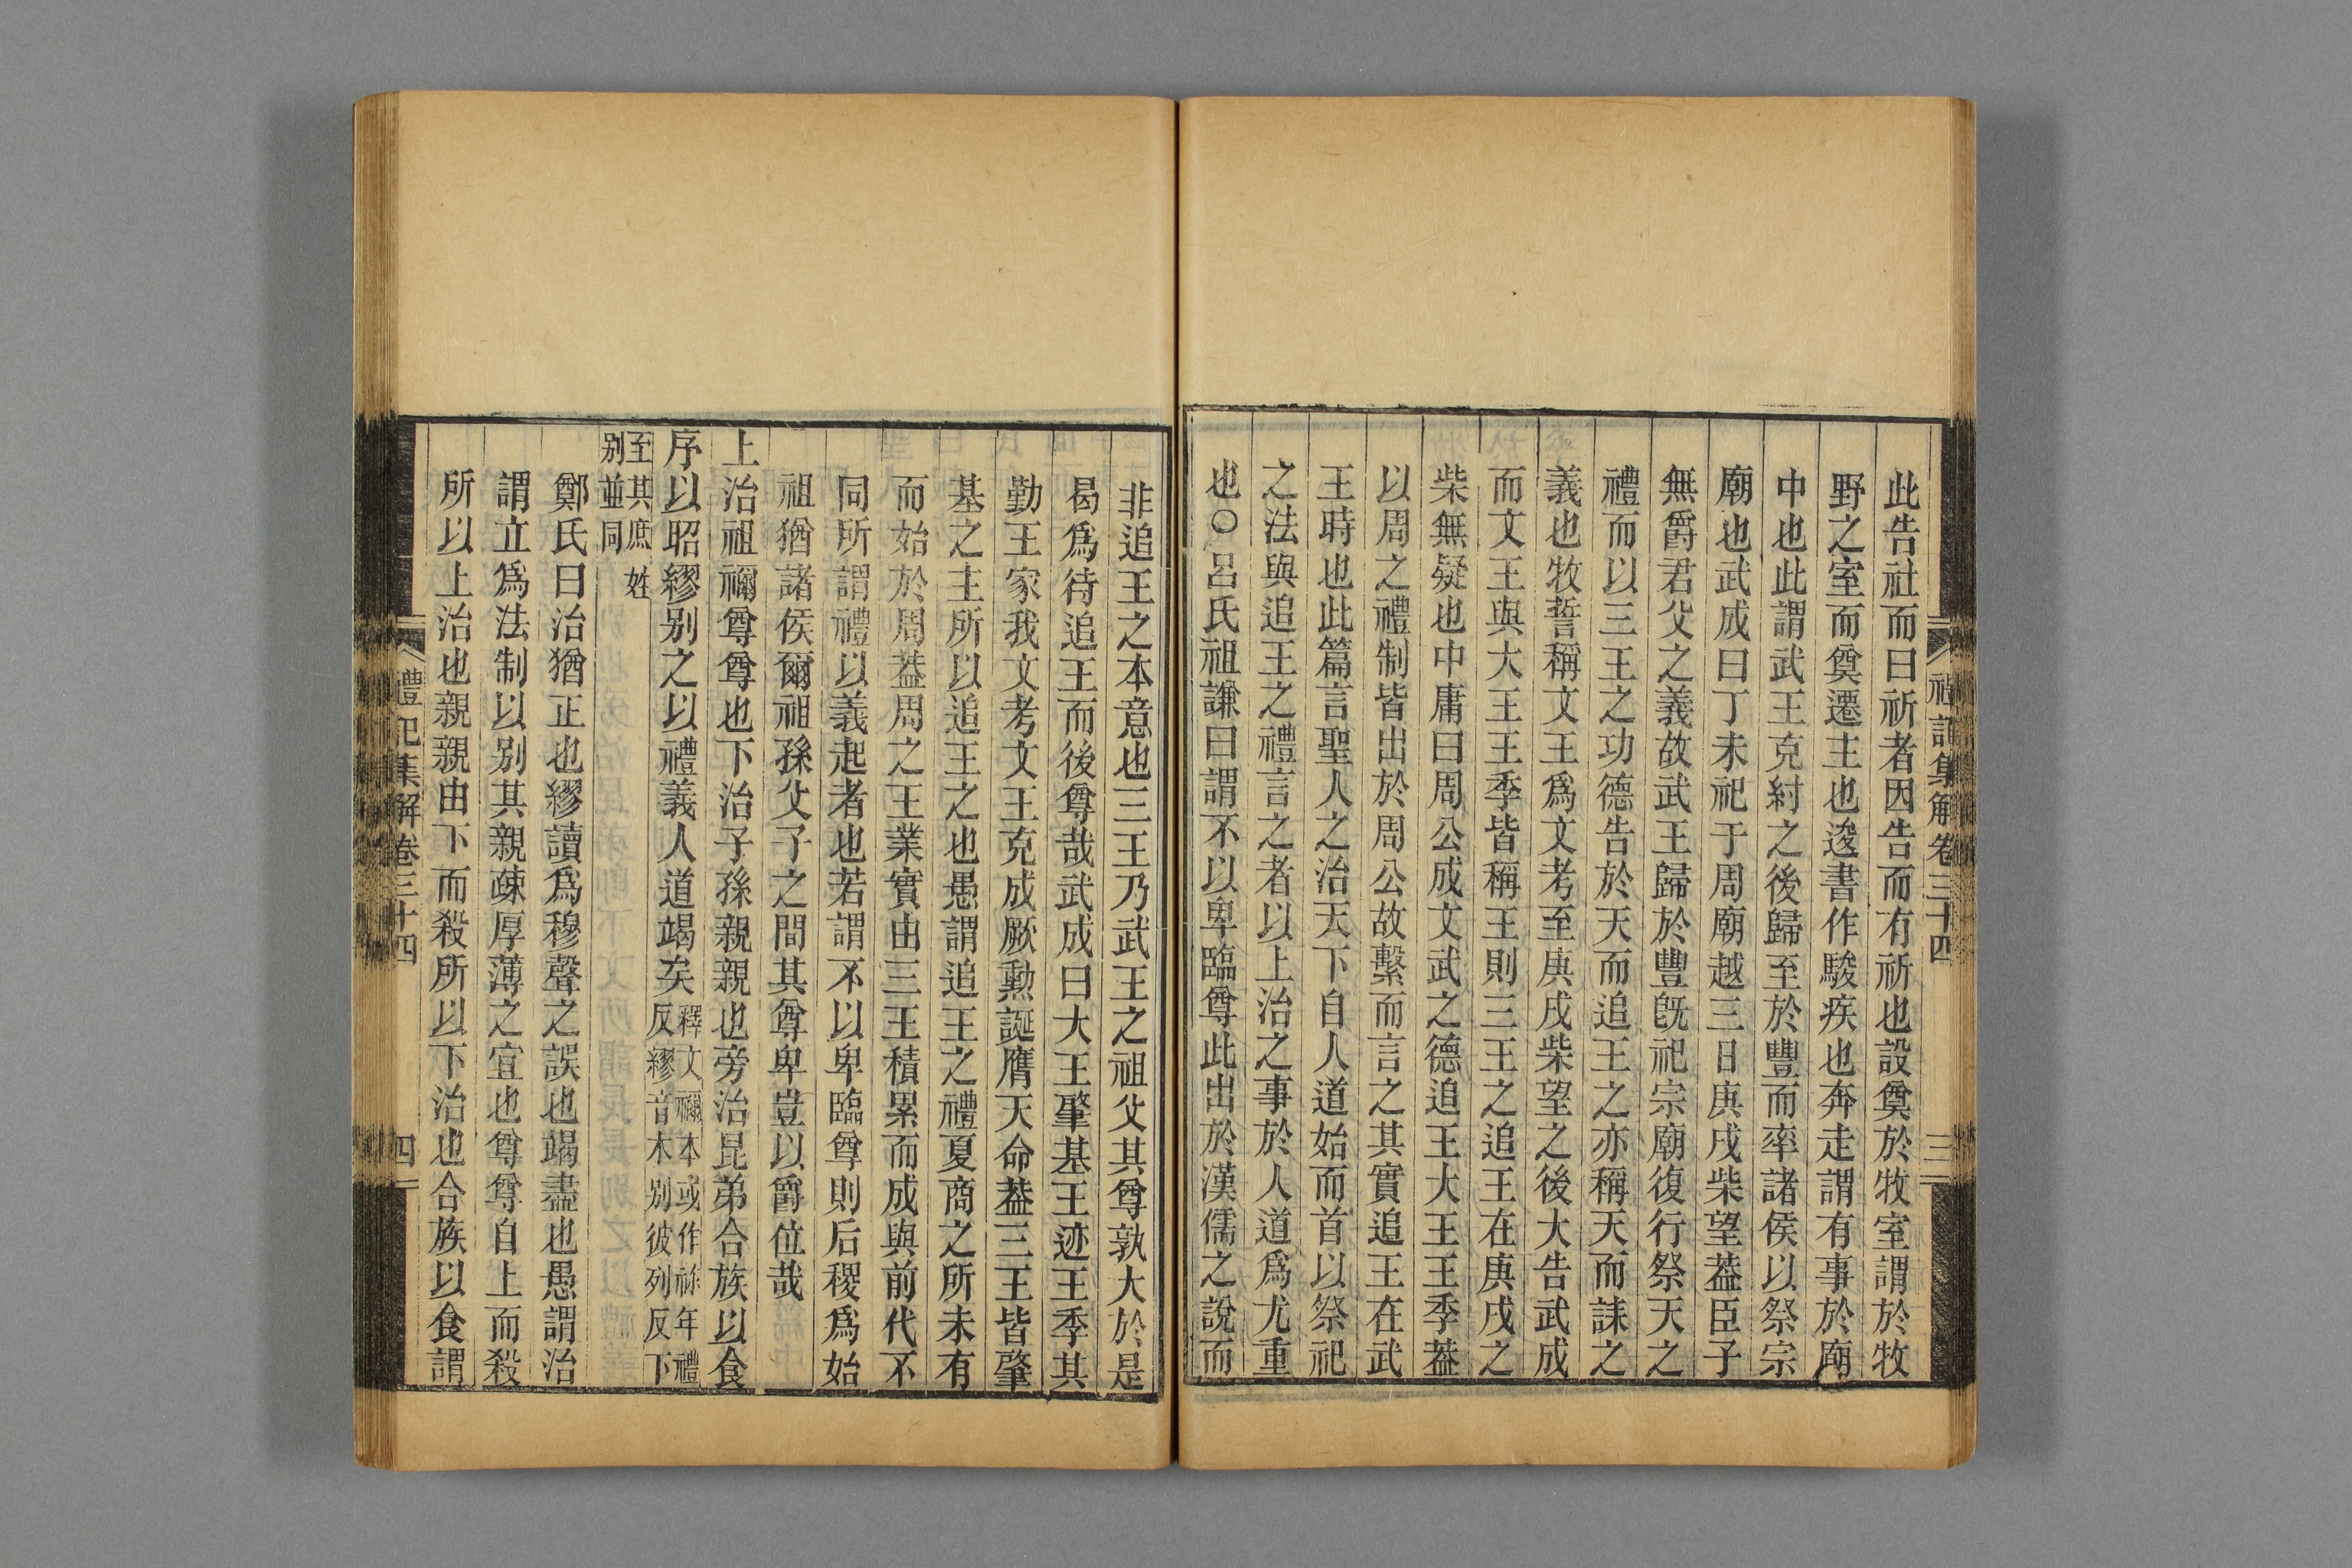 禮記集解卷三十四
三
此告社而曰祈者因告而有祈也設奠於牧室謂於牧
野之室而奠遷主也逡書作駿疾也奔走謂有事於廟
中也此謂武王克紂之後歸至於豐而率諸侯以祭宗
廟也武成曰丁未祀于周廟越三日庚戌柴望葢臣子
無爵君父之義故武王歸於豐旣祀宗廟復行祭天之
禮而以三王之功德告於天而追王之亦稱天而誄之
義也牧誓稱文王爲文考至庚戌柴望之後大告武成
而文王與大王王季皆稱王則三王之追王在庚戌之
柴無疑也中庸曰周公成文武之德追王大王王季葢
以周之禮制皆出於周公故繫而言之其實追王在武
王時也此篇言聖人之治天下自人道始而首以祭祀
之法與追王之禮言之者以上治之事於人道爲尤重
也○呂氏祖謙曰謂不以卑臨尊此出於漢儒之說而
非追王之本意也三王乃武王之祖父其尊孰大於是
曷爲待追王而後尊哉武成曰大王肇基王迹王季其
勤王家我文考文王克成厥勳誕膺天命葢三王皆肇
基之主所以追王之也愚謂追王之禮夏商之所未有
而始於周葢周之王業實由三王積累而成與前代不
同所謂禮以義起者也若謂不以卑臨尊則后稷爲始
祖猶諸侯爾祖孫父子之間其尊卑豈以爵位哉
上治祖禰尊尊也下治子孫親親也旁治昆弟合族以食
序以昭繆别之以禮義人道竭矣釋文禰本或作祢年禮
反繆音木别彼列反下
至其庶姓
别並同
鄭氏曰治猶正也繆讀爲穆聲之誤也竭盡也愚謂治
謂立爲法制以别其親疎厚薄之宜也尊尊自上而殺
所以上治也親親由下而殺所以下治也合族以食謂
禮記集解卷三十四
四